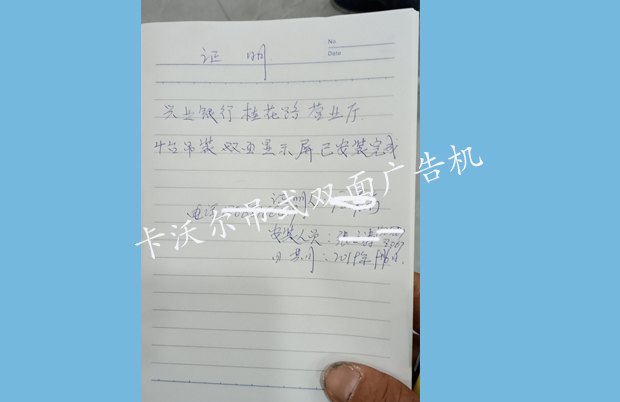 No.
Date
证明
兴业银行桂花路营业厅
吊装双面显示屏已安装完成
证明人:
电话
安装人员:
日期:2019年
卡沃尔吊式双面广告机